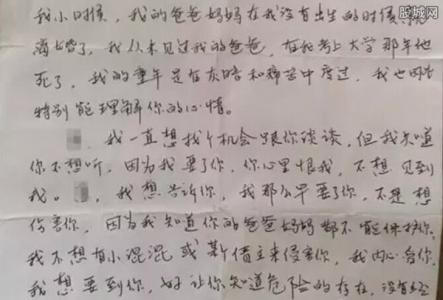 股城网
我小时候，我的爸爸妈妈在我没有出生的时候
离婚了，我从未见过我的爸爸，在我考上大学那年他
死了，我的童年是在灰暗和痛苦中度过，我也因此
特别能理解你的心情。
我一直想找个机会跟你谈谈，但我知道
你不想听，因为我要了你，你心里恨我，不想见到
我。我想告诉你，我那么早要了你，不是想
伤害你，因为我知道你的爸爸妈妈都不能保护你，
我不想有小混混或某债主来侵害你，我内心
我想要到你，好让你知道危险的存在，没有经